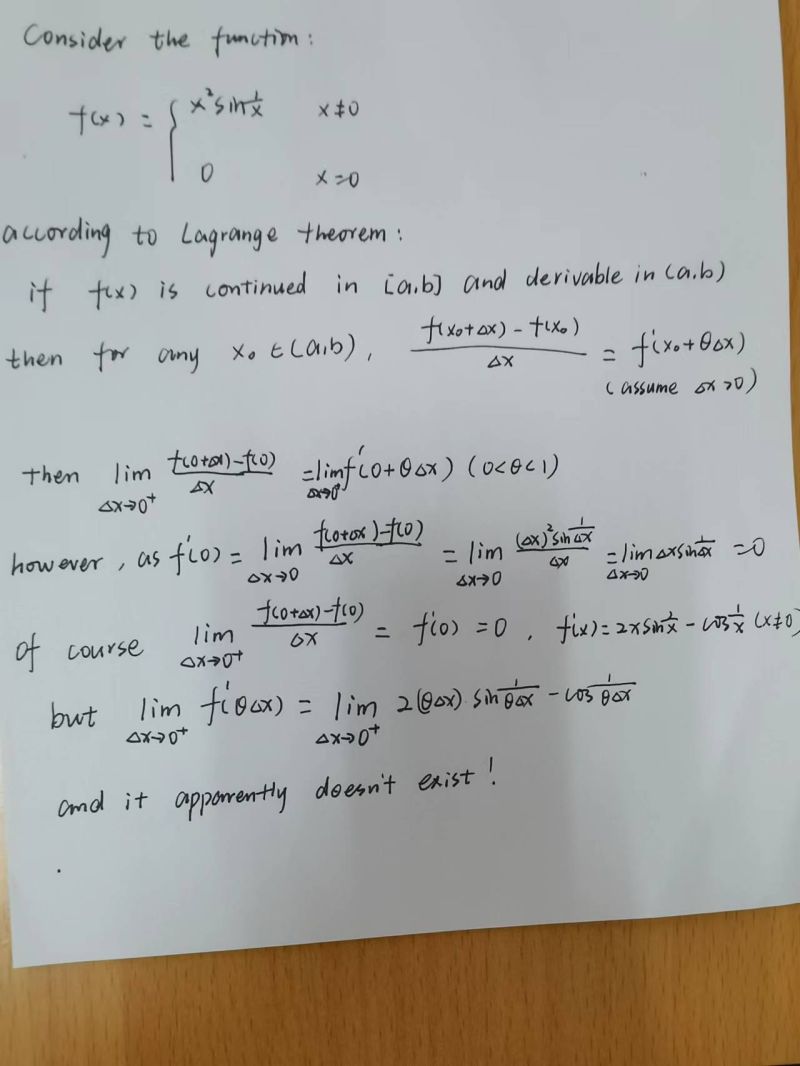 Consider the function:
f(x) = { x² sin 1/x    x≠0
0    x=0
according to Lagrange theorem:
if f(x) is continued in [a,b] and derivable in (a,b)
then for any x₀ ∈ (a,b), (f(x₀+Δx) - f(x₀))/Δx = f'(x₀+θΔx)
(assume Δx>0)
Then lim_{Δx→0⁺} (f(0+Δx)-f(0))/Δx = lim_{Δx→0⁺} f'(0+θΔx) (0<θ<1)
however, as f'(0) = lim_{Δx→0} (f(0+Δx)-f(0))/Δx = lim_{Δx→0} ((Δx)² sin 1/Δx)/Δx = lim_{Δx→0} Δx sin 1/Δx = 0
of course lim_{Δx→0⁺} (f(0+Δx)-f(0))/Δx = f'(0) = 0, f'(x) = 2x sin 1/x - cos 1/x (x≠0)
but lim_{Δx→0⁺} f'(θΔx) = lim_{Δx→0⁺} 2(θΔx) · sin 1/θΔx - cos 1/θΔx
and it apparently doesn't exist!
.